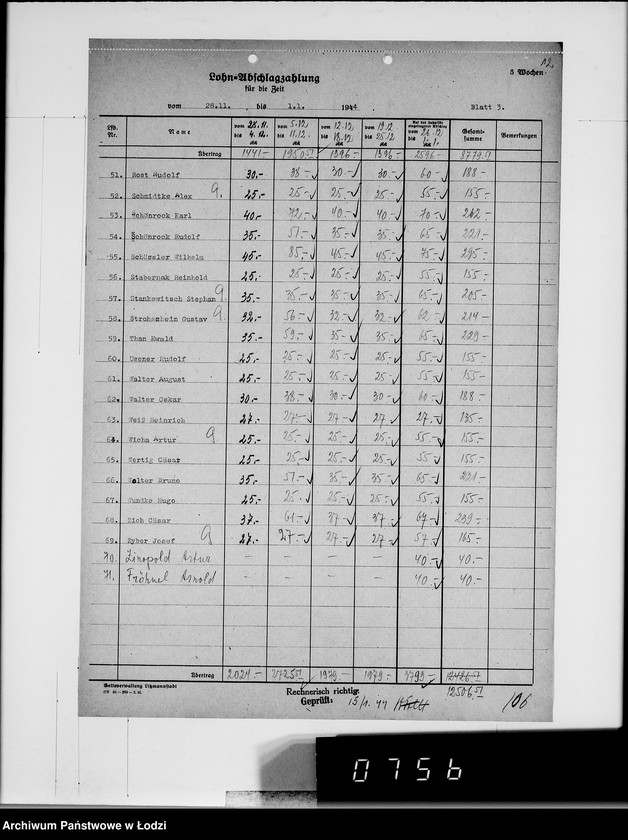 12.
Lohn-Abschlagzahlung
5 Wochen
für die Zeit
vom 28.11. bis 1.1. 1944 Blatt 3.
Lfd. Nr. Name vom 28.11. bis 4.12. vom 5.12 bis 11.12. vom 12.12 bis 18.12 vom 19.12 bis 25.12 vom 26.12 bis 1.1. Gesamtsumme Bemerkungen
Übertrag 1441.- 1396.- 1396.- 2596.-
51. Rost Rudolf 30.- 38.- 30.- 30.- 60.- 188.-
52. Schmidtke Alex 25.- 25.- 25.- 25.- 55.- 155.-
53. Schönrock Karl 40.- 72.- 40.- 40.- 70.- 262.-
54. Schönrock Rudolf 35.- 51.- 35.- 35.- 65.- 221.-
55. Schüssler Wilhelm 45.- 85.- 45.- 45.- 75.- 295.-
56. Stabernak Reinhold 25.- 25.- 25.- 25.- 55.- 155.-
57. Stankewitsch Stephan 35.- 35.- 35.- 35.- 65.- 205.-
58. Strohschein Gustav 32.- 56.- 32.- 32.- 62.- 214.-
59. Than Ewald 35.- 59.- 35.- 35.- 65.- 229.-
60. Usener Rudolf 25.- 25.- 25.- 25.- 55.- 155.-
61. Walter August 25.- 25.- 25.- 25.- 55.- 155.-
62. Walter Oskar 30.- 38.- 30.- 30.- 60.- 188.-
63. Weiß Heinrich 27.- 27.- 27.- 27 27.- 135.-
64. Wicha Artur 25.- 25.- 25.- 25.- 55.- 155.-
65. Wertig Cäsar 25.- 25.- 25.- 25.- 55.- 155.-
66. Wolter Bruno 35.- 51.- 35.- 35.- 65.- 221.-
67. Wundke Hugo 25.- 25.- 25.- 25.- 55.- 155.-
68. Zich Cäsar 37.- 61.- 37.- 37.- 67.- 239.-
69. Zyber Josef 27.- 27.- 27.- 27.- 57.- 165.-
70. Arthur — — — — 40.- 40.-
71. Fröhnel Arnold — — — — 40.- 40.-
Übertrag 2024.- 1979.- 1979.- 3799.-
Gettoverwaltung Litzmannstadt
Rechnerisch richtig:
Geprüft: 15/1.44
106
0756
Archiwum Państwowe w Łodzi